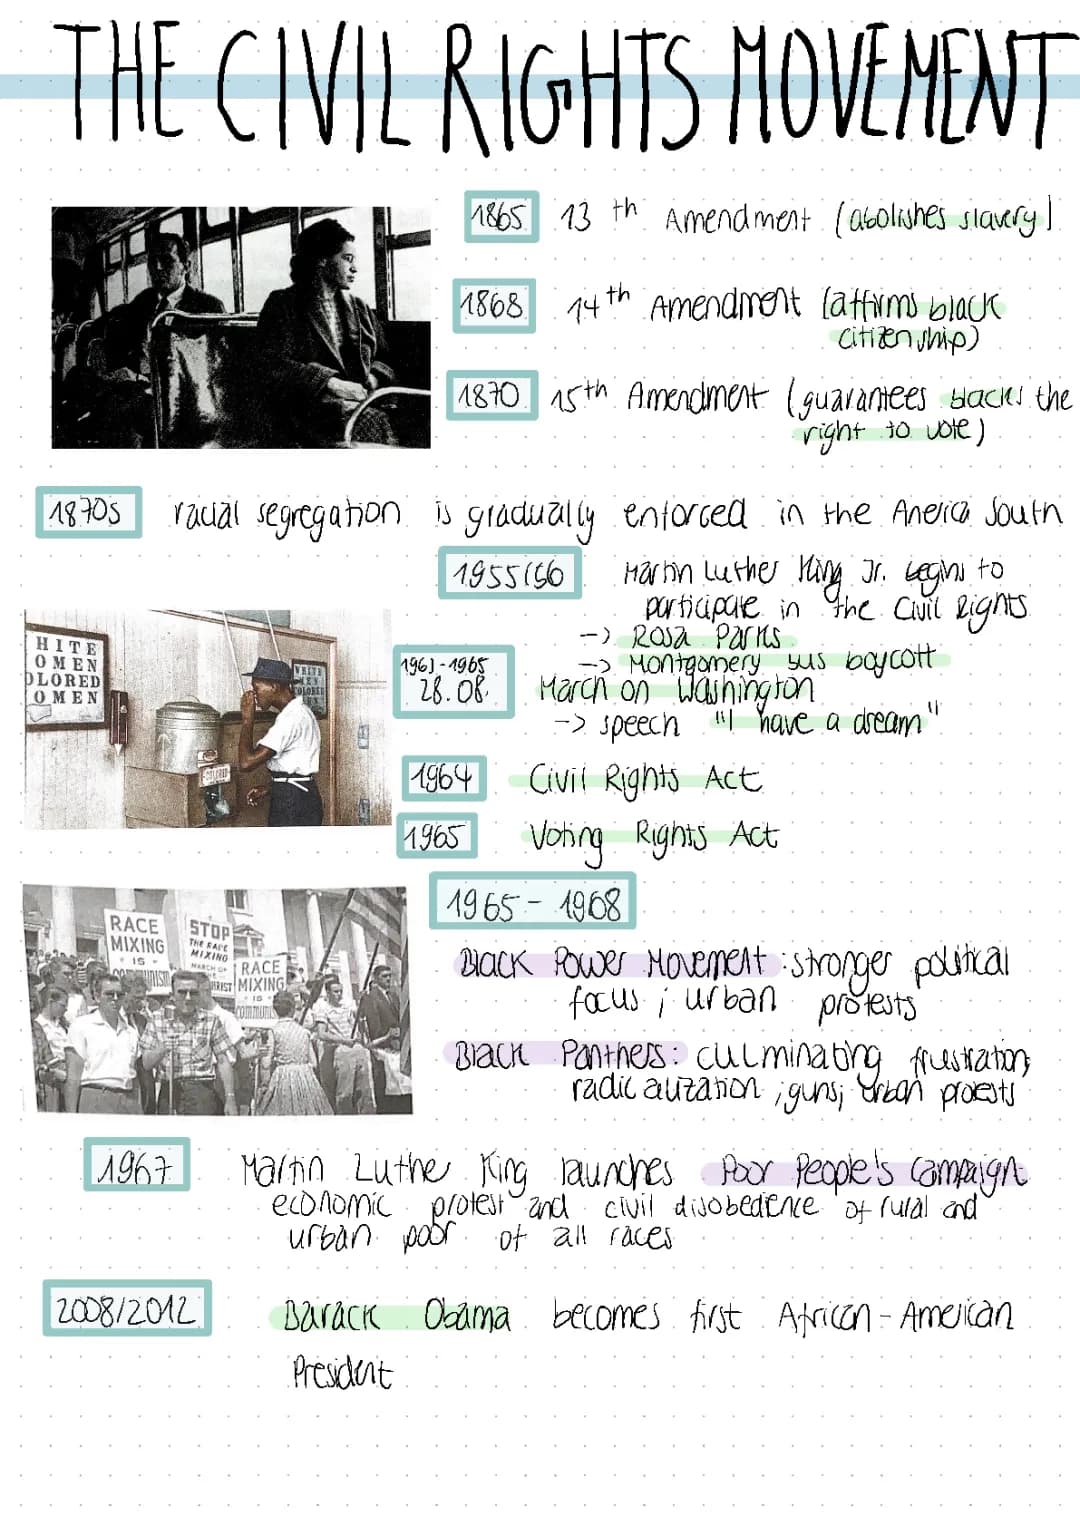 THE CIVIL RIGHTS MOVEMENT
1865 13 th Amendment (abolishes slavery)
1868 14th Amendment (affirms black
citizenship)
1870 15th Amendment (guarantees blacks the
right to vote)
1870s racial segregation is gradually enforced in the America South
1955/56 Martin Luther King Jr. begins to
participate in the Civil Rights
-> Rosa Parks
-> Montgomery bus boycott
1963-1965
28.08. March on Washington
-> speech "I have a dream"
HITE
OMEN
OLORED
OMEN
WHITE
MEN
COLORED
1964 Civil Rights Act
1965 Voting Rights Act
1965 - 1968
Black Power Movement: stronger political
focus ; urban protests
Black Panthers: culminating frustration;
radicalization ; guns; urban protests
RACE
MIXING
IS
COMMUNISM
STOP
THE RACE
MIXING
MARCH OF
CHRIST
RACE
MIXING
IS
COMMUNIS
1967 Martin Luther King launches Poor People's Campaign
economic protest and civil disobedience of rural and
urban poor of all races
2008/2012 Barack Obama becomes first African-American
President